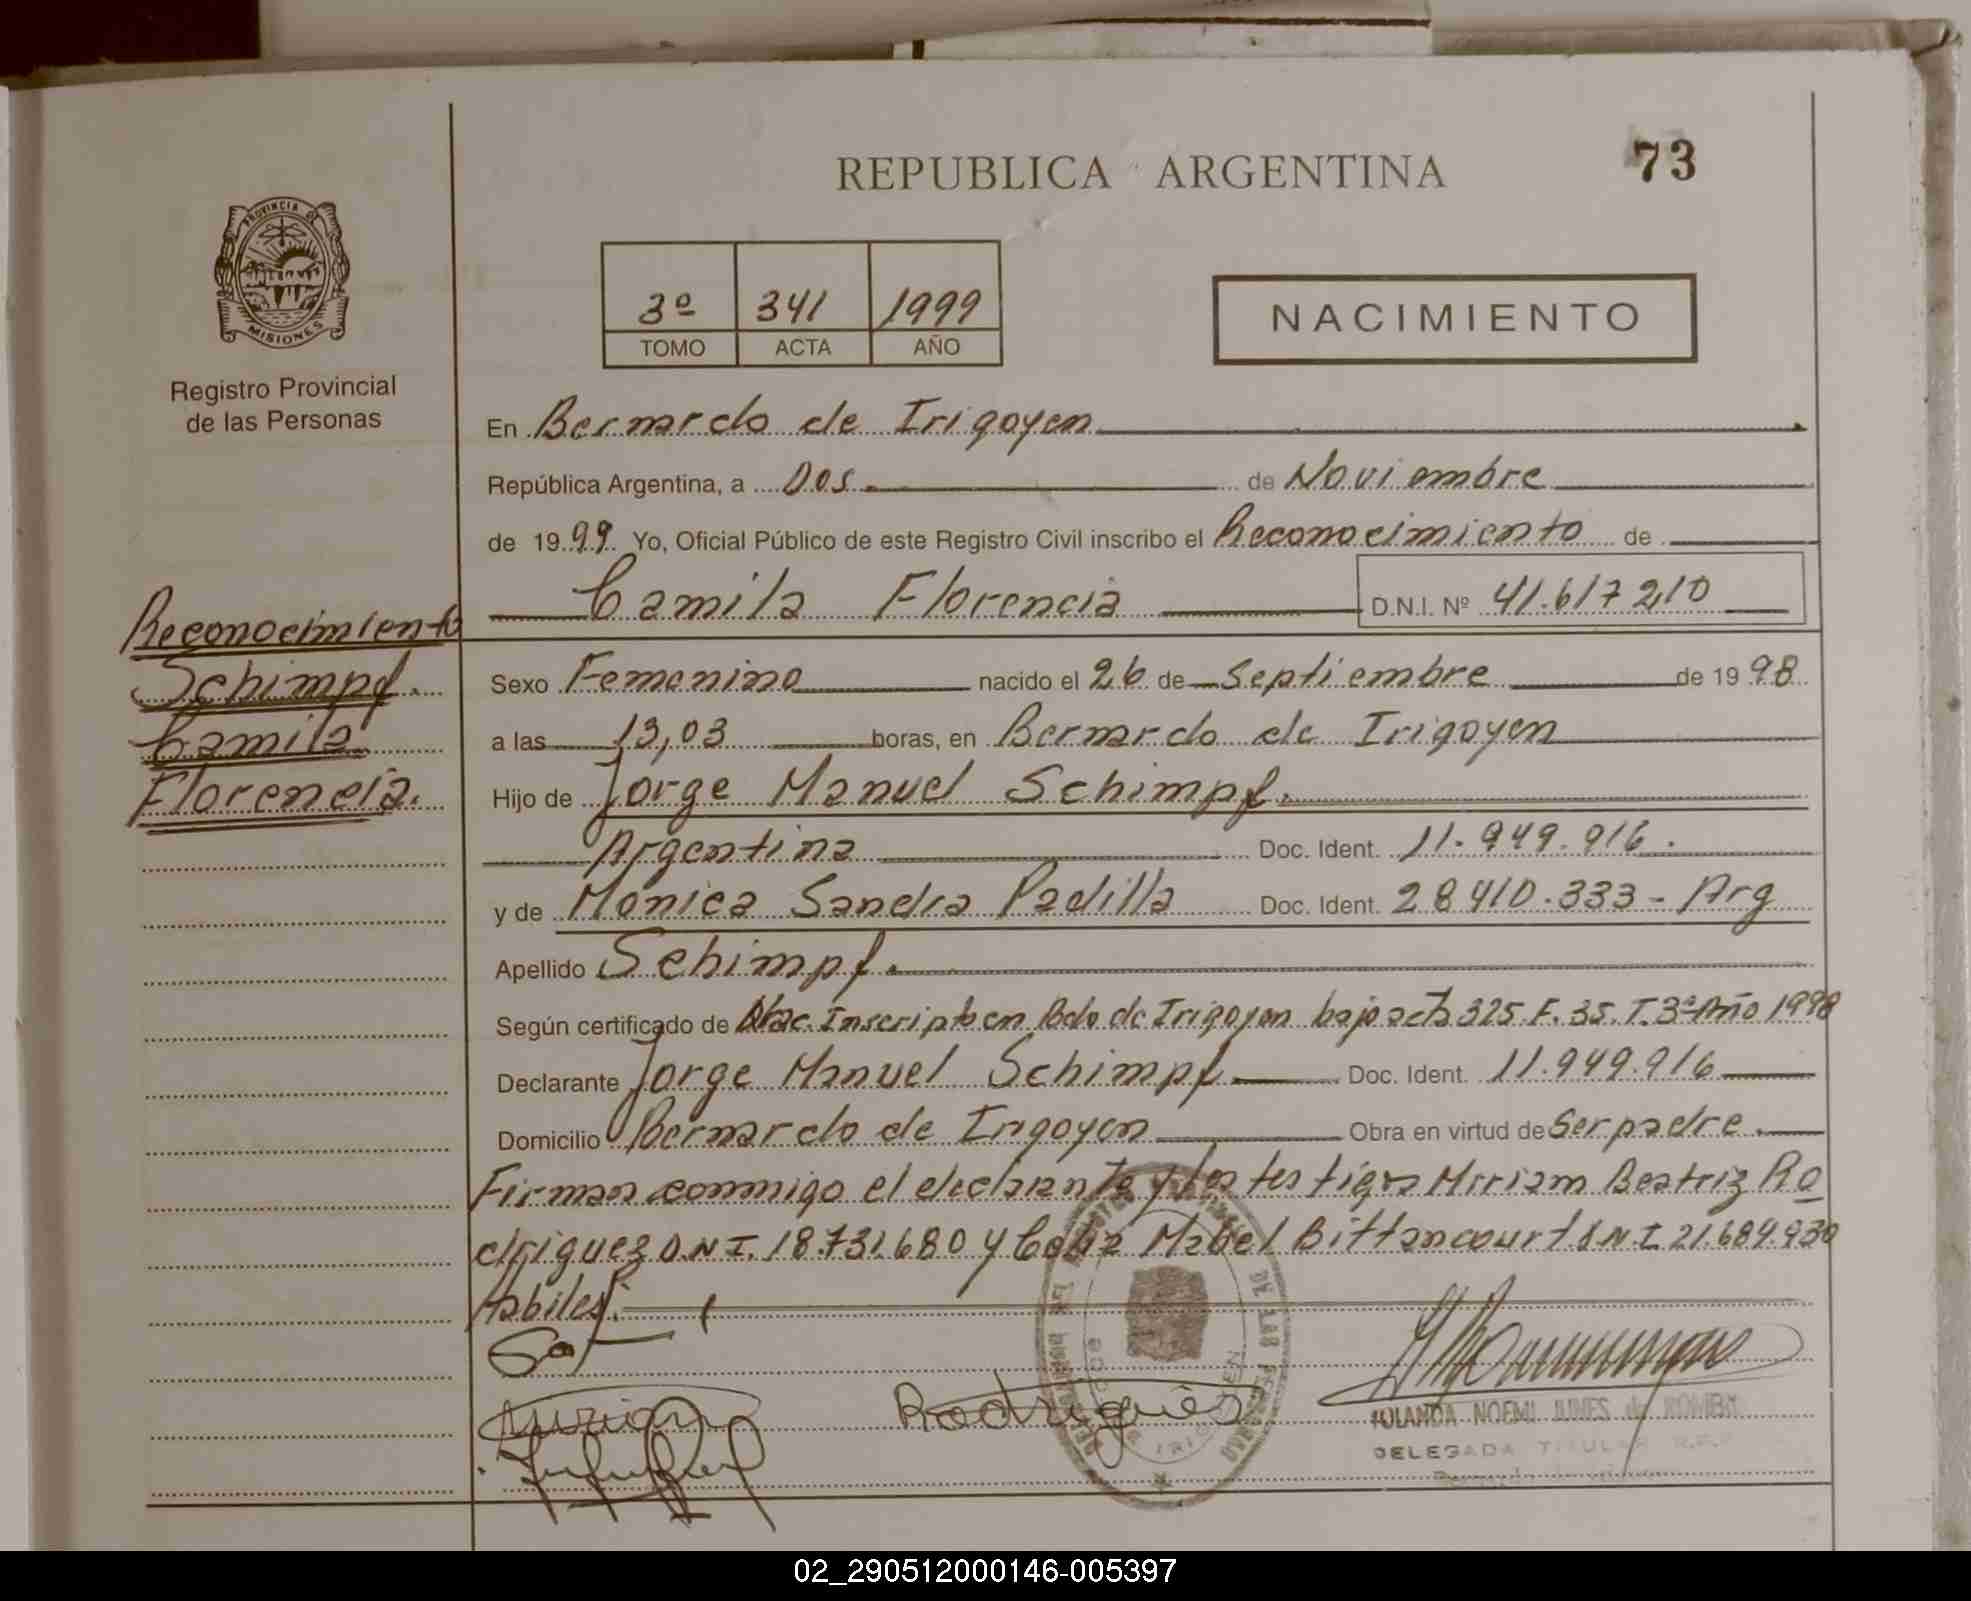 REPUBLICA ARGENTINA
73
PROVINCIA DE
MISIONES
Registro Provincial
de las Personas
3º 341 1999
TOMO ACTA AÑO
NACIMIENTO
En Bernardo de Irigoyen
República Argentina, a Dos de Noviembre
de 1999 Yo, Oficial Público de este Registro Civil inscribo el Reconocimiento de
Camila Florencia D.N.I. Nº 41.617210
Reconocimiento
Schimpf.
Camila
Florencia.
Sexo Femenino nacido el 26 de Septiembre de 1998
a las 13,03 horas, en Bernardo de Irigoyen
Hijo de Jorge Manuel Schimpf.
Argentina Doc. Ident. 11.949.916.
y de Monica Sandra Padilla Doc. Ident. 28410.333 - Arg
Apellido Schimpf.
Según certificado de Nac. Inscripto en Bdo de Irigoyen bajo acta 325 F. 35. T. 3º Año 1998
Declarante Jorge Manuel Schimpf Doc. Ident. 11.949.916
Domicilio Bernardo de Irigoyen Obra en virtud de Ser padre.
Firman conmigo el declarante y los testigos Miriam Beatriz Ro
driguez D.N.I. 18.731.680 y Celia Mabel Bittancourt D.N.I. 21.689.930
habiles.
Miriam Rodrigues
YOLANDA NOEMI JUNES de ROMERO
DELEGADA TITULAR R.P.P.
02_290512000146-005397